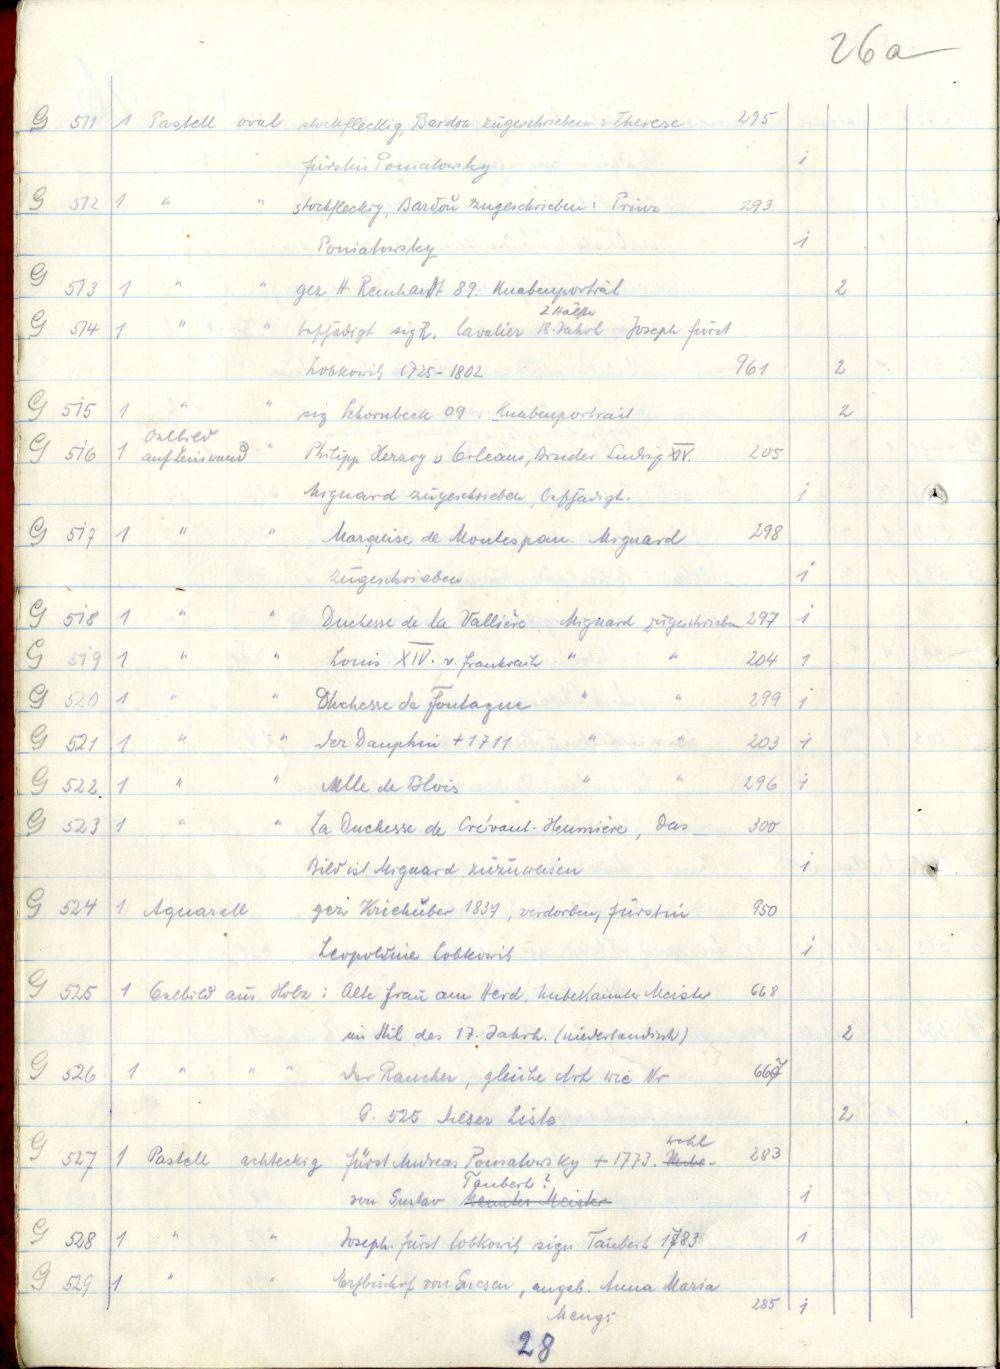 26a
G 511 1 Pastell oval stockfleckig, Bardou zugeschrieben: Therese 295
Fürstin Poniatowsky 1
G 512 1 " " stockfleckig, Bardou zugeschrieben: Prinz 293
Poniatowsky 1
G 513 1 " " gez H Reinhardt 89. Knabenporträt 2
2 Hälfte
G 514 1 " " beschädigt sign. Cavalier 18. Jahrh Joseph Fürst
Lobkowitz 1725-1802 961 2
G 515 1 " " sig Schornbeck 09. Knabenportrait 2
Oelbild
G 516 1 auf Leinwand " Philipp Herzog v Orleans, Bruder Ludwig XIV. 205
Mignard zugeschrieben, beschädigt. 1
G 517 1 " " Marquise de Montespan. Mignard 298
zugeschrieben 1
G 518 1 " " Duchesse de la Vallière. Mignard zugeschrieben 297 1
G 519 1 " " Louis XIV. v. Frankreich " " 204 1
G 520 1 " " Duchesse de Fontagne " " 299 1
G 521 1 " " Der Dauphin + 1711 " " 203 1
G 522 1 " " Melle de Blois " " 296 1
G 523 1 " " La Duchesse de Crévant-Heumière, Das 300
Bild ist Mignard zuzuweisen 1
G 524 1 Aquarell gez. Kriehuber 1837, verdorben, Fürstin 950
Leopoldine Lobkowitz 1
G 525 1 Oelbild auf Holz: Alte Frau am Herd, unbekannter Meister 668
im Stil des 17. Jahrh. (niederländisch) 2
G 526 1 " " " Der Raucher, gleiche Art wie Nr 667
G. 525 dieser Liste 2
wohl
G 527 1 Pastell achteckig Fürst Andreas Poniatowsky + 1773. Unbe- 283
Taubert?
von Gustav kannter Meister 1
G 528 1 " " Joseph. Fürst Lobkowitz sign Taubert 1783 1
G 529 1 " " Erzbischof von Gnesen, angeb. Anna Maria
Mengs 285 1
28